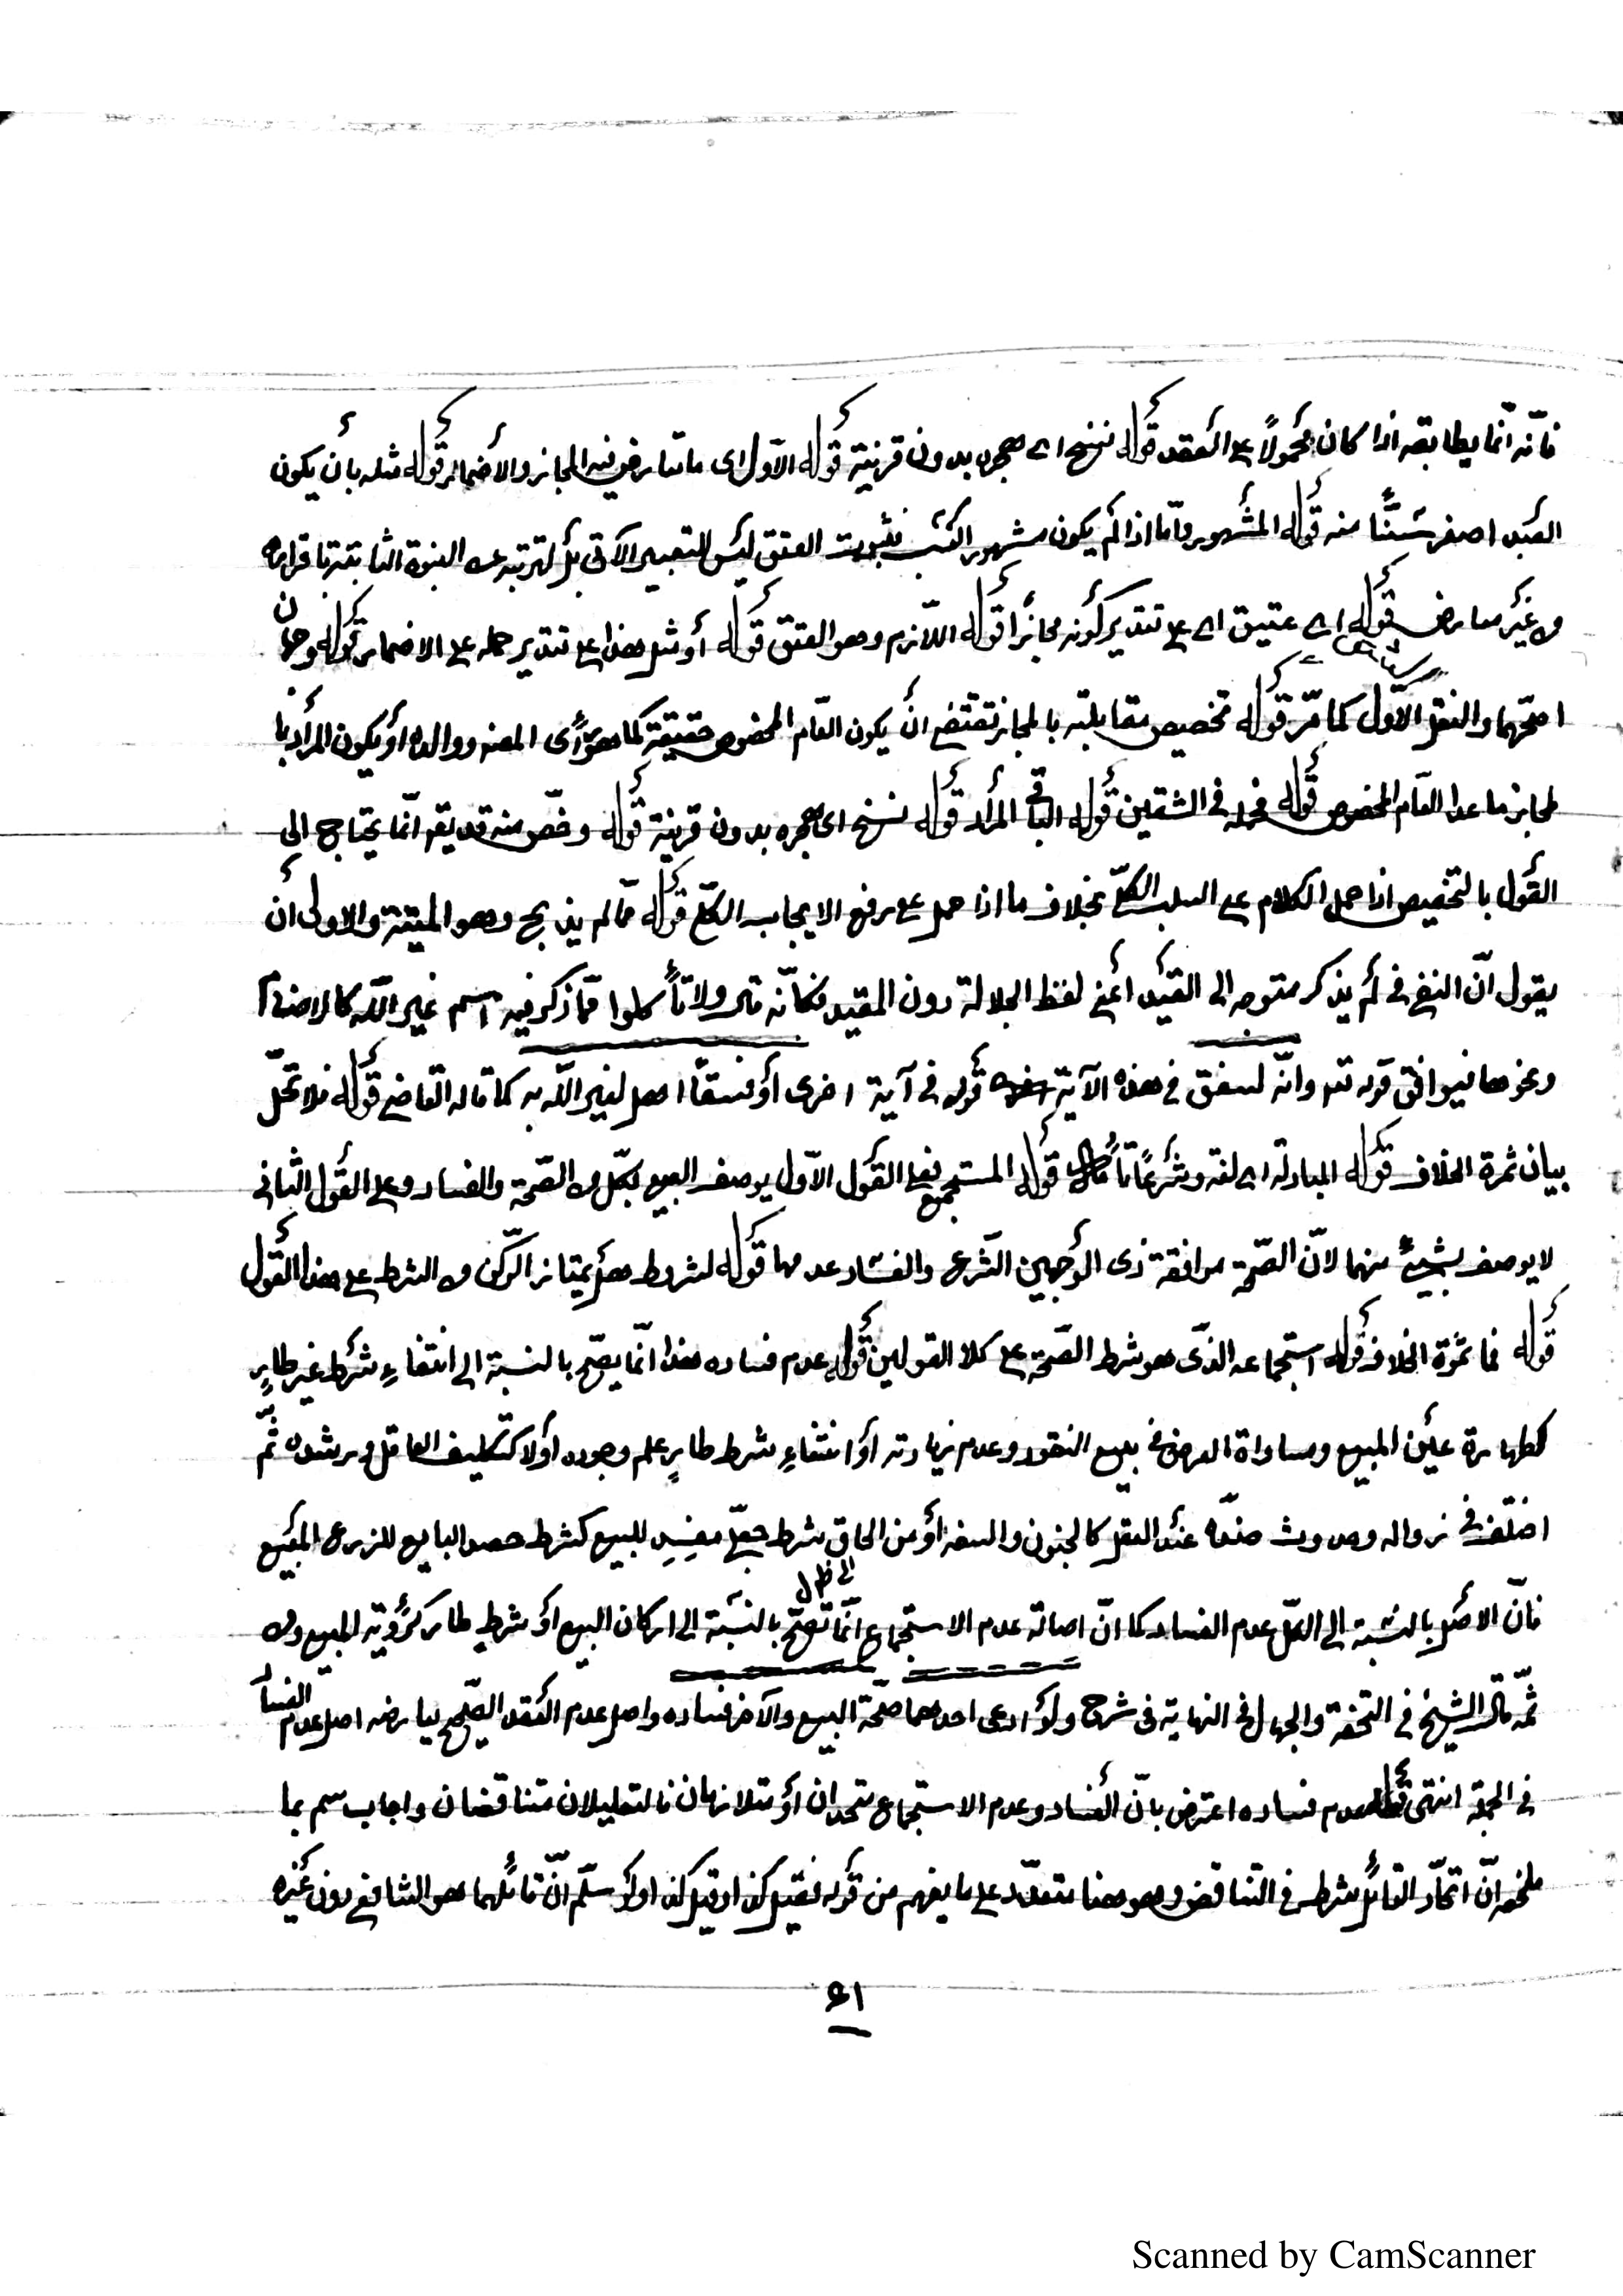 فانّه انّما يطابقه اذا كان محمولًا على العقد قوله نسخ اى هجره بدون قرينة قوله الاوّل اى ما تعارض فيه المجاز والاضمار قوله مثله بأن يكون
العبد اصغر سنًّا منه قوله المشهور وامّا اذا لم يكون مشهور النسب فثبوت العتق ليس للتعبير الآتى بل لترتبه على البنوة الثابتة باقراره
من غير معارض قوله اى عتيق اى على تقدير كونه مجازا قوله اللّازم وهو العتق قوله أو مثل هذا على تقدير حمله على الاضمار قوله وجهان
اصحّهما والنقل الاوّل كما مرّ قوله تخصيص مقابلته بالمجاز تقتضى ان يكون العام المخصوص حقيقة كما هو رأى المصنّف ووالده أو يكون المراد با
لمجاز ما عدا العام المخصوص قوله فحمله فى الشقين قوله الباقى المراد قوله نسخ اى هجره بدون قرينة قوله وخصّ منه قد يقال انّما يحتاج الى
القول بالتخصيص اذا حمل الكلام على السلب الكلّى بخلاف ما اذا حمل على رفع الايجاب الكلّى قوله ممّا لم يذبح وهو الميتة والاولى أن
يقول انّ النفى فى لم يذكر متوجه الى القيد أعنى لفظ الجلالة دون المقيد فكانّه قال ولا تأكلوا ممّا ذكر فيه اسم غير اللّه كالاصنام
ونحوها فيوافق قوله تعالى وانّه لفسق فى هذه الآية قوله فى آية اخرى أو فسقًا اهل لغير اللّه به كما قاله القاضى قوله فلا تحلّ
بيان ثمرة الخلاف قوله المبادلة اى لغة وشرعًا قوله المستجمع فعلى القول الاوّل يوصف البيع بكلّ من الصّحة والفساد وعلى القول الثانى
لا يوصف بشيئ منهما لانّ الصّحة موافقة ذى الوجهين الشرع والفساد عدمها قوله لشروط هل يمتاز الرّكن من الشرط على هذا القول
قوله فما ثمرة الخلاف قوله استجماعه الذى هو شرط الصّحة على كلا القولين قوله عدم فساده هذا انّما يصحّ بالنسبة الى انتفاءِ شرط غير طارٍ
كطهارة عين المبيع ومساواة العرض فى بيع النقود وعدم زيادته أو انتفاءِ شرط طارٍ علم وجوده أولا كتكليف العاقل ورشده ثمّ
اختلف فى زواله وحدوث ضدّه عند العقد كالجنون والسفه أو من الحاق شرط جعلىّ مفسِدٍ للبيع كشرط حصد البايع للزرع المبيع
فانّ الاصل بالنسبة الى الكلّ عدم الفساد كما انّ اصالة عدم الاستجماع انّما تصحّ بالنسبة الى اركان البيع أو شرط طار كرؤية المبيع ومن
ثمّه قال الشيخ فى التحفة والجمال فى النهاية فى شرح ولو ادعى احدهما صحّة البيع والآخر فساده واصل عدم العقد الصّحيح يعارضه اصل عدم الفساد
فى الجملة انتهى قوله عدم فساده اعترض بانّ الفساد وعدم الاستجماع متحدان أو متلازمان فالتعليلان متناقضان واجاب سم بما
ملخصه انّ اتحاد القائل شرط فى التناقض وهو هنا متعدّد على ما يفهم من قوله فقيل كذا وقيل كذا ولو سلّم انّ قائلهما هو الشافعى دون غيره
٤١
Scanned by CamScanner